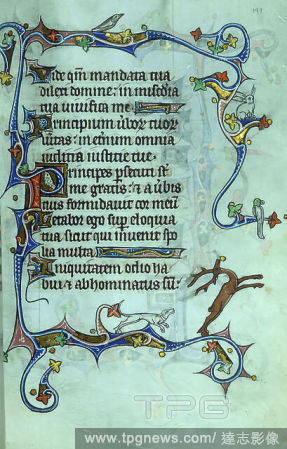 Vide qm mandata tua
dilexi domine: in misedia
tua vivifica me
Principium vboz tuoz
vitas: in etnum omnia
iudicia iusticie tue
Principes persecuti st
me gratis: & a vbis
tuis formidavit cor meu
Letabor ego sup eloquia
tua sicut qui invenit spo
lia multa
Iniquitatem odio ha
bui & abhominatus su
TPG
www.tpgnews.com/ 達志影像